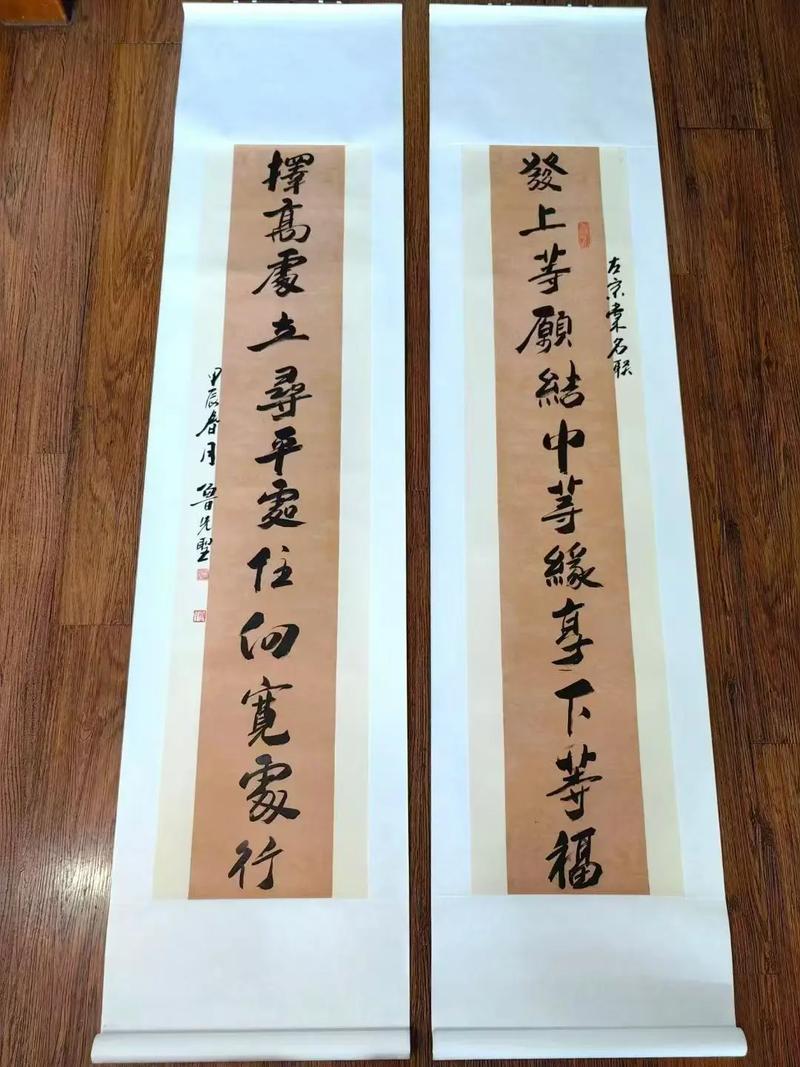 發上等願結中等緣享下等福
左宗棠名联
擇高處立尋平處住向寬處行
甲辰春月 魯先聖